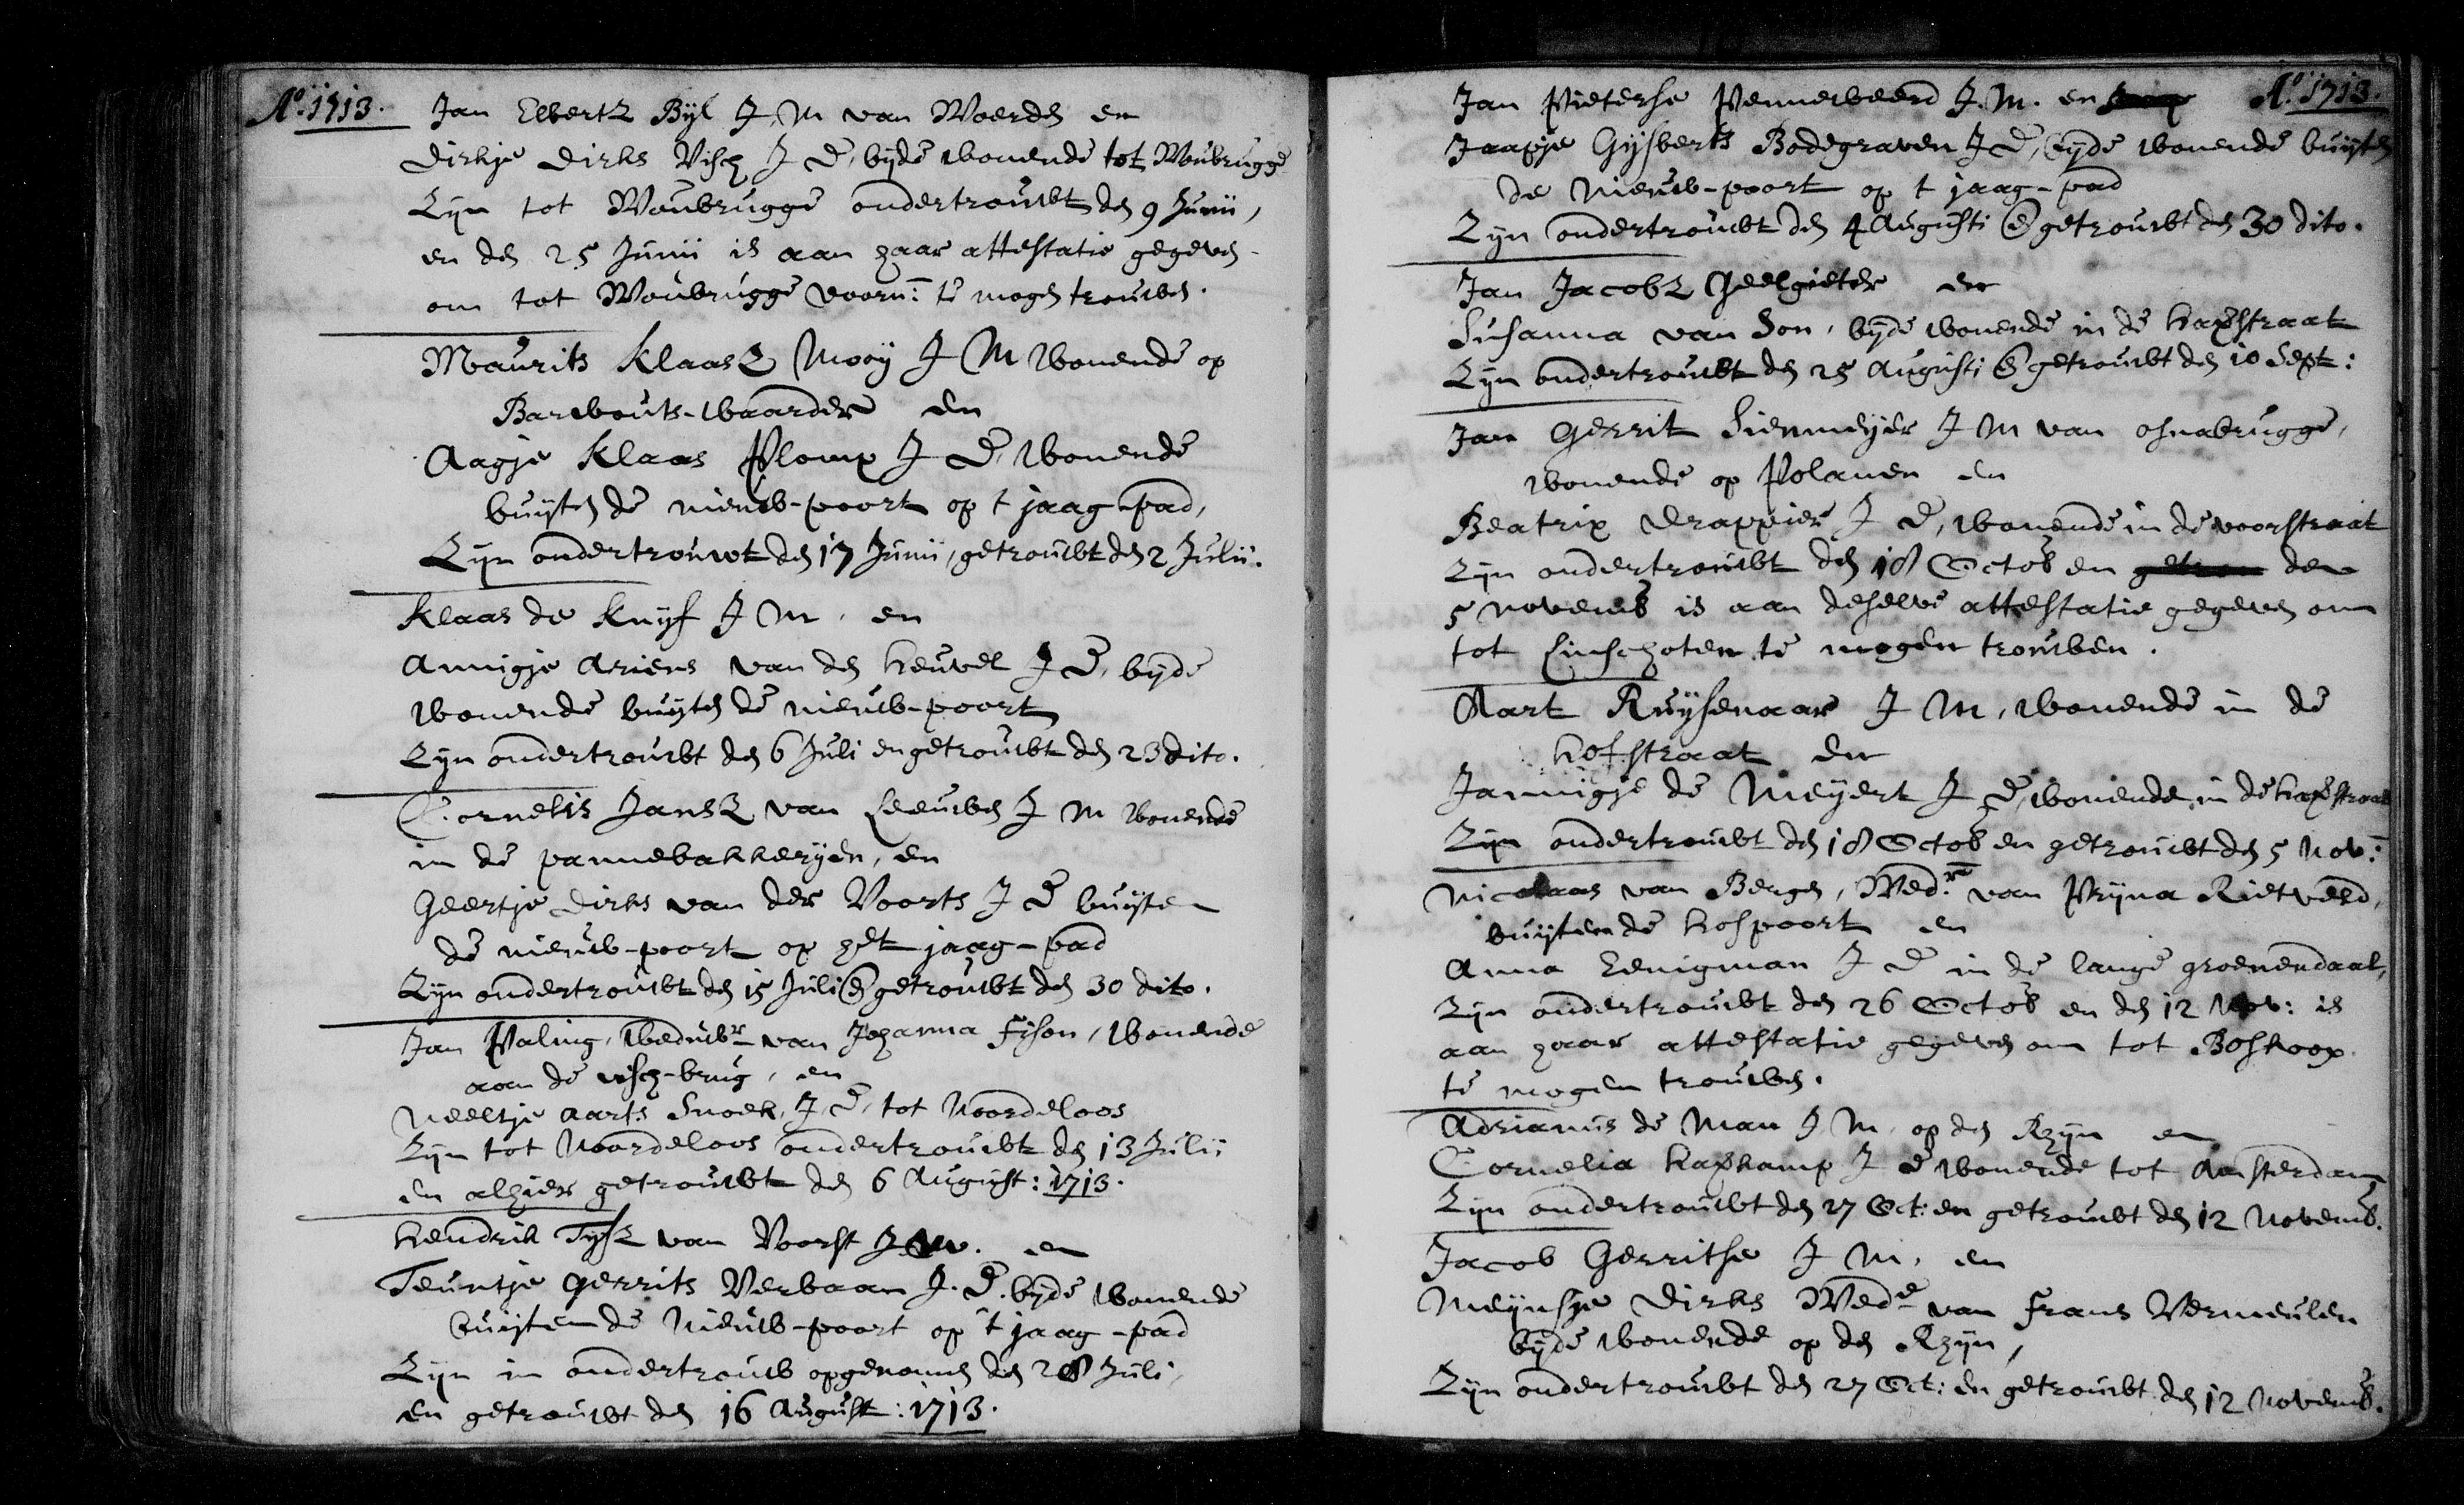 Ao. 1713.
Jan Elbertz Byl J. M van Woerden en
Dirkje Dirks Visch J D, byde wonende tot Woubrugge
Zyn tot Woubrugge ondertrouwt den 9 Junii,
en den 25 Junii is aan haar attestatie gegeven
om tot Woubrugge voorn: te mogen trouwen.
Maurits Klaasz Mooy J M wonende op
Barwouts-waarder en
Aagje Klaas Plomp J D, wonende
buyten de nieuw-poort op t jaag-pad,
Zyn ondertrouwt den 17 Junii, getrouwt den 2 Julii.
Klaas de Knyf J M, en
Annigje Ariens van den Heuvel J D, byde
wonende buyten de nieuw-poort
Zyn ondertrouwt den 6 Juli en getrouwt den 23 dito.
Cornelis Jansz van Leeuwen J M wonende
in de pannebakkeryen, en
Geertje Dirks van der Voorts J D buyten
de nieuw-poort op het jaag-pad
Zyn ondertrouwt den 15 Juli en getrouwt den 30 dito.
Jan Paling, Weduwr van Johanna Fison, wonende
aan de visch-brug, en
Neeltje Aarts Snoek, J, D, tot Noordeloos
Zyn tot Noordeloos ondertrouwt den 13 Julii
en alhier getrouwt den 6 August: 1713.
Hendrik Tysz van Voorst J M. en
Teuntje Gerrits Verbaan J. D. byde wonende
buyten de Nieuw-poort op 't jaag-pad
Zyn in ondertrouw opgenomen den 28 Juli,
en getrouwt den 16 August: 1713.
Ao. 1713.
Jan Pieterse Penneweerd J. M. en
Jaapje Gysberts Bodegraven J D, byde wonende buyten
de Nieuw-poort op t jaag-pad
Zyn ondertrouwt den 4 Augusti en getrouwt den 30 dito.
Jan Jacobz Geelgieter en
Susanna van Son, byde wonende in de Kapstraat
Zyn ondertrouwt den 25 Augusti en getrouwt den 10 Sept:
Jan Gerrit Sienmeyer J M van Osnabrugge,
wonende op Polanen en
Beatrix Drappier J D, wonende in de voorstraat
Zyn ondertrouwt den 18 Octob en getrou den
5 Novemb is aan deselve attestatie gegeven om
tot Linschoten te mogen trouwen.
Aart Ruysenaar J M, wonende in de
hofstraat en
Jannigje de Meyert J D, wonende in de Kapstraat
Zyn ondertrouwt den 18 Octob en getrouwt den 5 Nov:
Nicolaas van Bergen, Wedr van Pryna Rietveld,
buyten de hofpoort en
Anna Eenigman J D in de lange groenendaal,
Zyn ondertrouwt den 26 Octob en den 12 Nov: is
aan haar attestatie gegeven om tot Boskoop
te mogen trouwen.
Adrianus de Man J M, op den Rhyn en
Cornelia Kapkamp J D wonende tot Amsterdam
Zyn ondertrouwt den 27 Oct: en getrouwt den 12 Novemb.
Jacob Gerritse J M, en
Meynsje Dirks Wede van Frans Vermeulen
byde wonende op den Rhyn,
Zyn ondertrouwt den 27 Oct: en getrouwt den 12 Novemb.